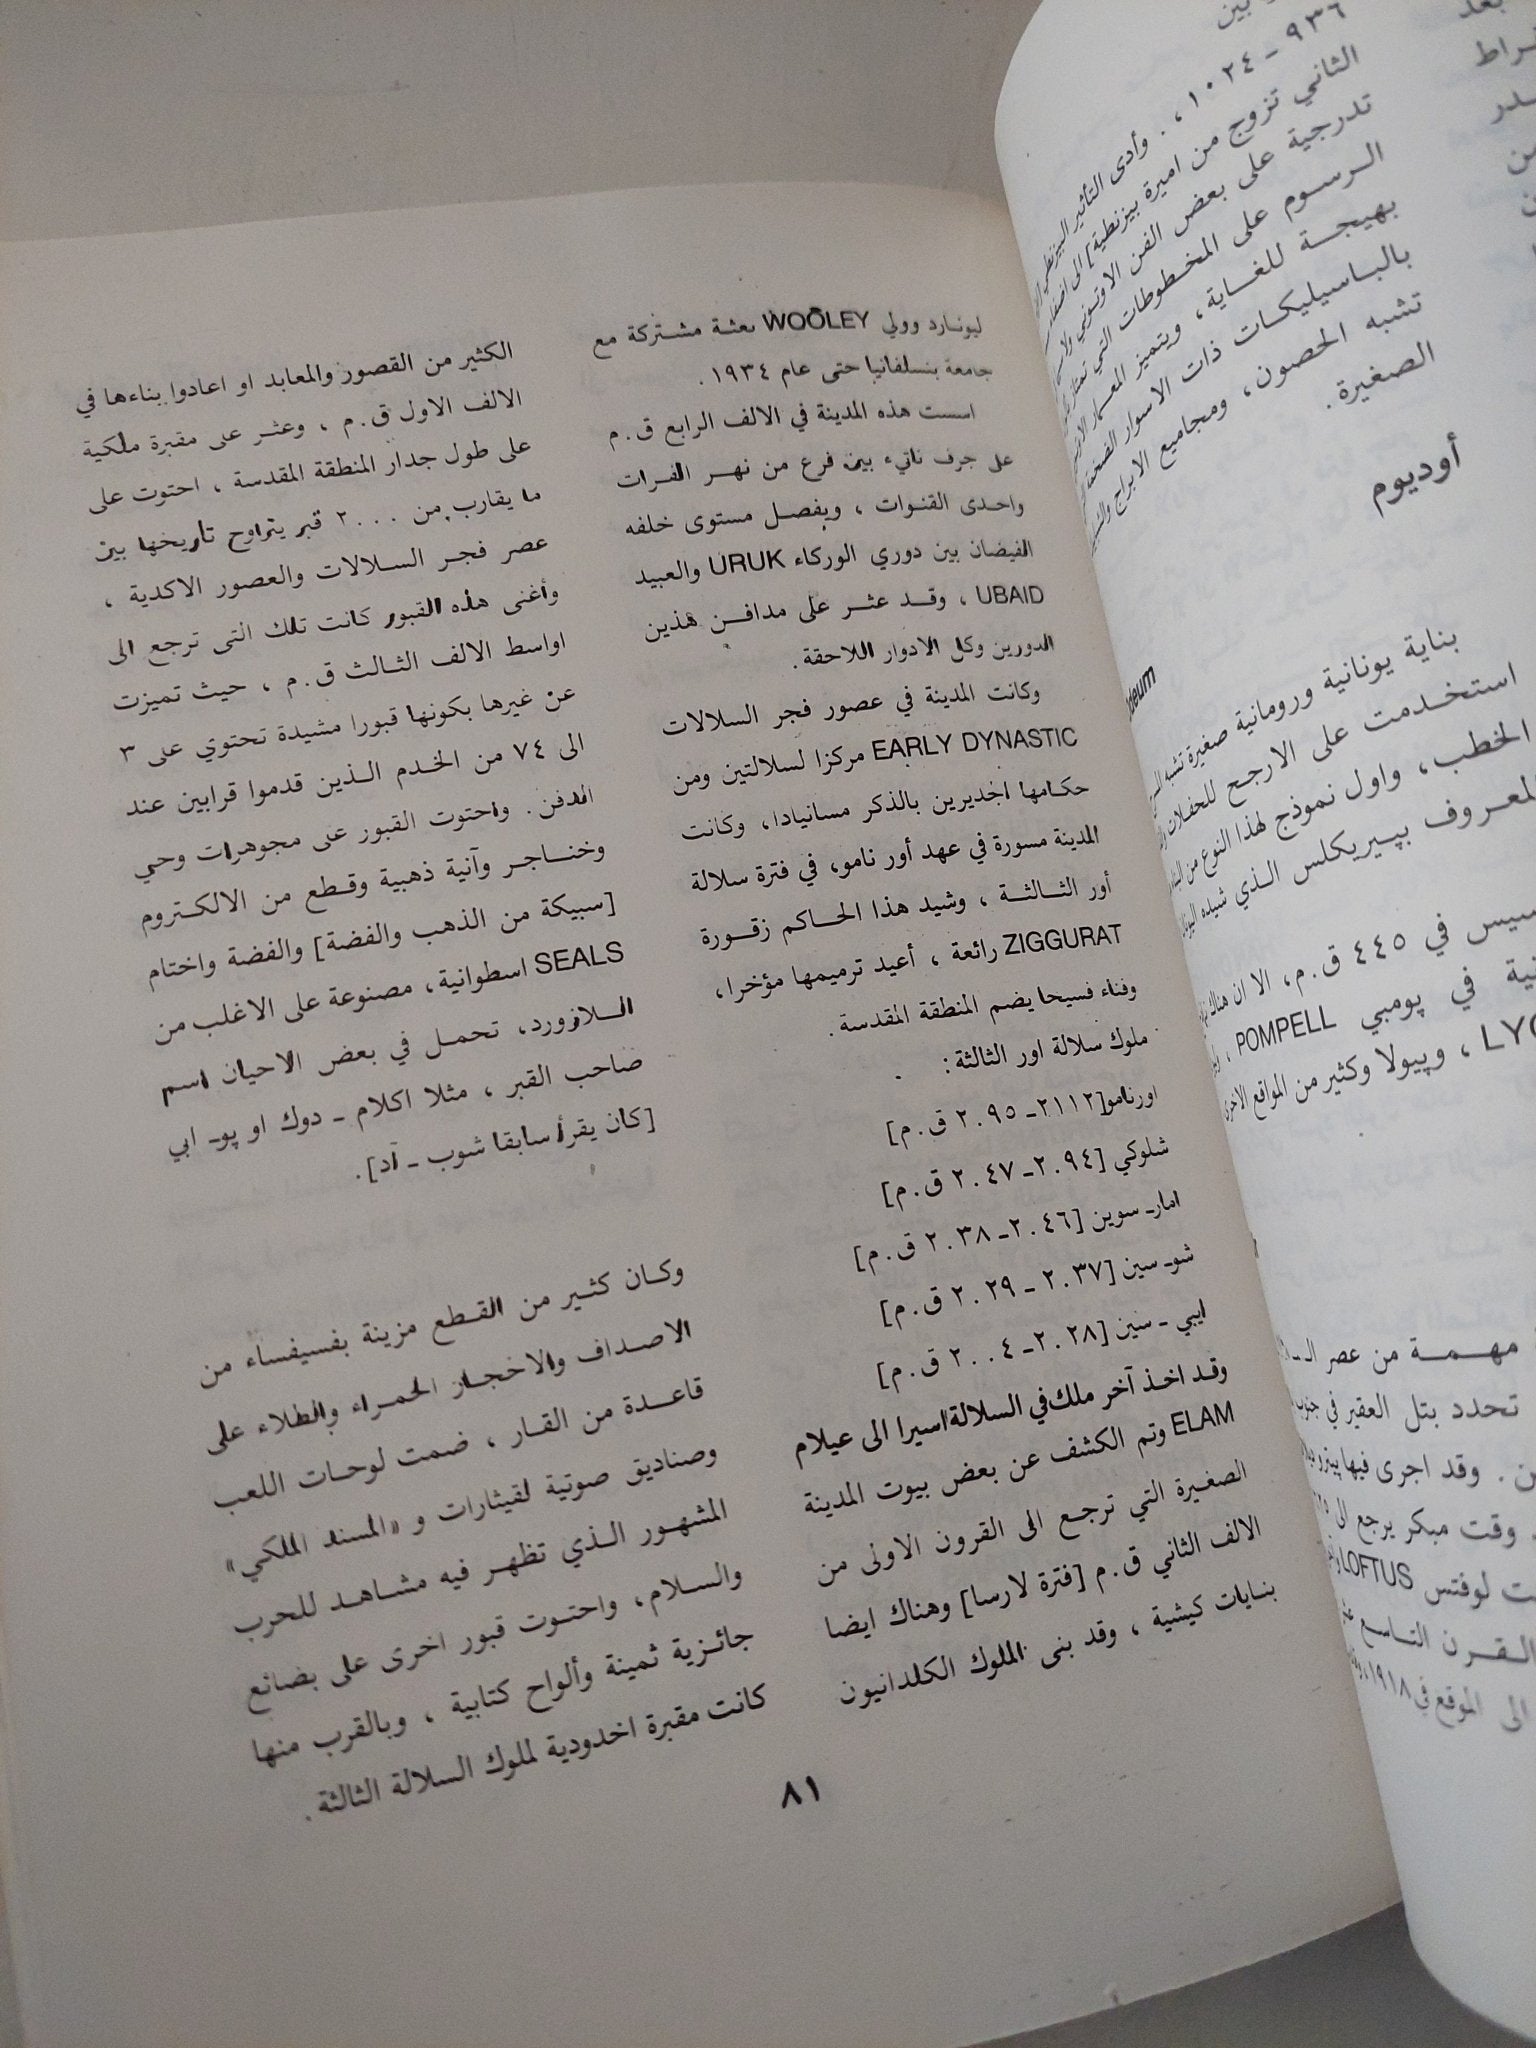 ليونارد وولي WOOLEY بعثة مشتركة مع
جامعة بنسلفانيا حتى عام ١٩٣٤ .
اسست هذه المدينة في الالف الرابع ق.م
على جرف ناتيء بين فرع من نهر الفرات
واحدى القنوات ، ويفصل مستوى خلفه
الفيضان بين دوري الوركاء URUK والعبيد
UBAID ، وقد عثر على مدافن هذين
الدورين وكل الادوار اللاحقة .
وكانت المدينة في عصور فجر السلالات
EARLY DYNASTIC مركزا لسلالتين ومن
حكامها الجديرين بالذكر مسانيادا، وكانت
المدينة مسورة في عهد أور نامو، في فترة سلالة
أور الثالثة ، وشيد هذا الحاكم زقورة
ZIGGURAT رائعة ، أعيد ترميمها مؤخرا،
وفناء فسيحا يضم المنطقة المقدسة .
ملوك سلالة اور الثالثة :
اورنامو[٢١١٢ـ ٢٠٩٥ ق.م]
شلوكي [٢٠٩٤ـ ٢٠٤٧ ق.م]
امارـ سوين [٢٠٤٦ـ ٢٠٣٨ ق.م]
شوـ سين [٢٠٣٧ ـ ٢٠٢٩ ق.م]
ايبي ـ سين [٢٠٢٨ـ ٢٠٠٤ ق.م]
وقد اخذ آخر ملك في السلالة اسيرا الى عيلام
ELAM وتم الكشف عن بعض بيوت المدينة
الصغيرة التي ترجع الى القرون الاولى من
الالف الثاني ق.م [فترة لارسا] وهناك ايضا
بنايات كيشية ، وقد بنى الملوك الكلدانيون
الكثير من القصور والمعابد او اعادوا بناءها في
الالف الاول ق.م ، وعثر على مقبرة ملكية
على طول جدار المنطقة المقدسة ، احتوت على
ما يقارب من ٢٠٠٠ قبر يتراوح تاريخها بين
عصر فجر السلالات والعصور الاكدية ،
وأغنى هذه القبور كانت تلك التى ترجع الى
اواسط الالف الثالث ق.م ، حيث تميزت
عن غيرها بكونها قبورا مشيدة تحتوي على ٣
الى ٧٤ من الخدم الذين قدموا قرابين عند
المدفن. واحتوت القبور على مجوهرات وحي
وخناجر وآنية ذهبية وقطع من الالكتروم
[سبيكة من الذهب والفضة] والفضة واختام
SEALS اسطوانية، مصنوعة على الاغلب من
اللازورد، تحمل في بعض الاحيان اسم
صاحب القبر ، مثلا اكلام ـ دوك او پوـ ابي
[كان يقرأ سابقا شوب ـ آد].
وكان كثير من القطع مزينة بفسيفساء من
الاصداف والاحجار الحمراء والطلاء على
قاعدة من القار ، ضمت لوحات اللعب
وصناديق صوتية لقيثارات و «المسند الملكي»
المشهور الذي تظهر فيه مشاهد للحرب
والسلام، واحتوت قبور اخرى على بضائع
جائزية ثمينة وألواح كتابية ، وبالقرب منها
كانت مقبرة اخدودية لملوك السلالة الثالثة .
٨١
بين
٩٣٦ ـ ١٠٢٤ ، . وأدى التأثير البيزنطي
الثاني تزوج من اميرة بيزنطية] الى
تدرجية على بعض الفن الاوتوني
الرسوم على المخطوطات التي
بهيجة للغاية، ويتميز المعمار
بالباسيليكات ذات الاسوار الضخمة
تشبه الحصون، ومجاميع الابراج
الصغيرة .
أوديوم
بناية يونانية ورومانية صغيرة تشبه
استخدمت على الارجح للحفلات
الخطب، واول نموذج لهذا النوع من
المعروف بپيريكلس الذي شيده
في ٤٤٥ ق.م، الا ان هناك
في پومبي POMPELL ،
، وپيولا وكثير من المواقع الاخرى
مهمة من عصر
تحدد بتل العقير في
. وقد اجرى فيها
وقت مبكر يرجع الى
لوفتس LOFTUS
القرن التاسع
الى الموقع في ١٩١٨،